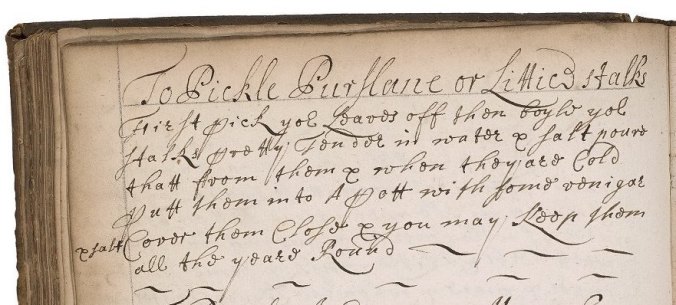 To Pickle Purslane or Litticd stalks
First pick yoe Leaves off then boyle yoe
stalks pretty tender in water & salt poure
thatt from them & when they are Cold
Putt them into A Pott with some venigar
& salt Cover them Close & you may Keep them
all the yeare Round